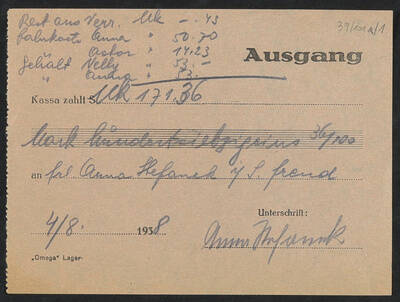 Rest aus Verr. Mk -.43
39/ / a/1
Bahnkarte Anna " 50.70
" Oskar " 14.23
Gehalt Nelly " 53.-
" Anna " 53.-
Ausgang
Kassa zahlt S Mk 171.36
Mark hundertsiebzigeins 36/100
an frl Anna Stefanek i/S. freud
4/8. 1938
Unterschrift:
Anna Stefanek
„Omega" Lager